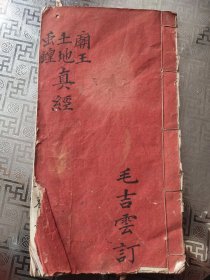 廟王
土地真經
虫蝗
毛吉雲訂